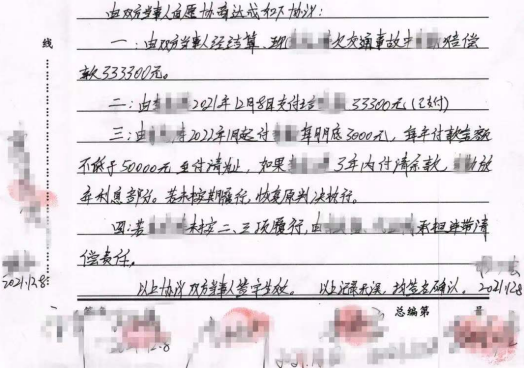 由双方当事人自愿协商达成和下协议:
一:由双方当事人经结算,现 欠交通事故中 赔偿
款333300元。
二:由 2021年12月8日支付给 33300元(已支付)
三:由 2022年1月起计 每月底3000元,每年付款金额
不低于50000元至付清为止,如果 3年内付清余款, 放
弃利息部分。若未按期履行,恢复原判决执行。
四:若 未按二、三项履行,由 承担连带清
偿责任。
以上协议双方当事人签字生效。 以上记录无误,均签名确认。
线
2021.12.8
2021.12.8
总编第 号
2.8